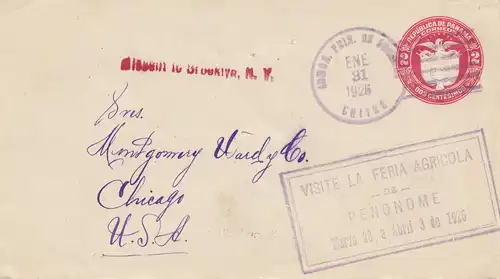 REPÚBLICA DE PANAMA
CORREOS
2
2
DOS CENTESIMOS
ADMON. PRIN. DE
ENE
31
1926
CHITRE
Missent to Brooklyn, N. Y.
Sres.
Montgomery Ward y Co.
Chicago
U.S.A.
VISITE LA FERIA AGRICOLA
DE
PENONOME
Marzo 28 a Abril 3 de 1926